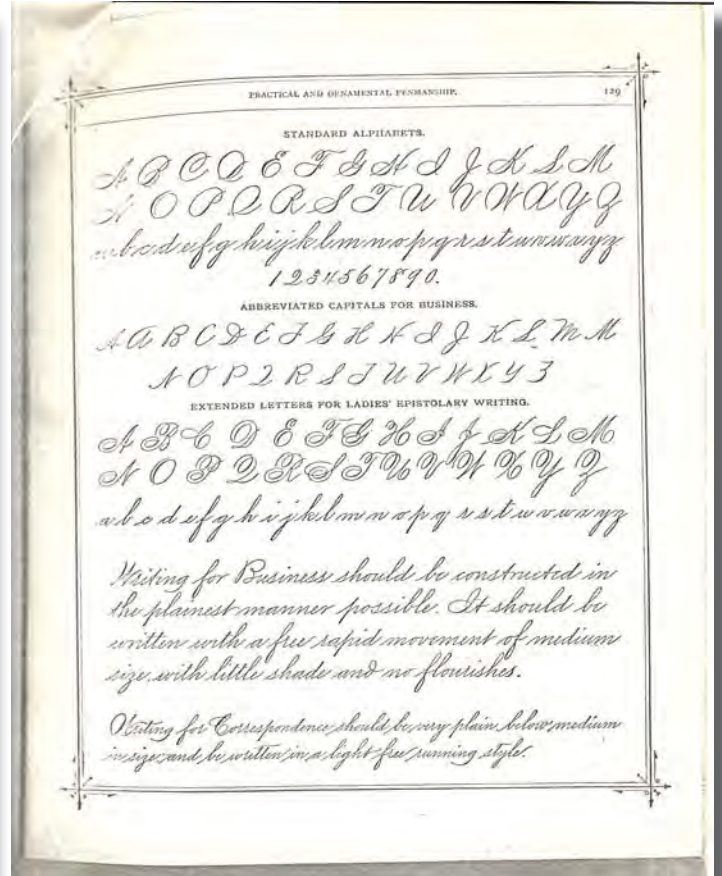 PRACTICAL AND ORNAMENTAL PENMANSHIP. 129
STANDARD ALPHABETS.
A B C D E F G H I J K L M
N O P Q R S T U V W X Y Z
a b c d e f g h i j k l m n o p q r s t u v w x y z
1 2 3 4 5 6 7 8 9 0.
ABBREVIATED CAPITALS FOR BUSINESS.
A A B C D E F G H H I J K L M M
N O P Q R S T U V W X Y Z
EXTENDED LETTERS FOR LADIES' EPISTOLARY WRITING.
A B C D E F G H I J K L M
N O P Q R S T U V W X Y Z
a b c d e f g h i j k l m n o p q r s t u v w x y z
Writing for Business should be constructed in
the plainest manner possible. It should be
written with a free rapid movement of medium
size, with little shade and no flourishes.
Writing for Correspondence should be very plain, below medium
in size, and be written in a light free running style.